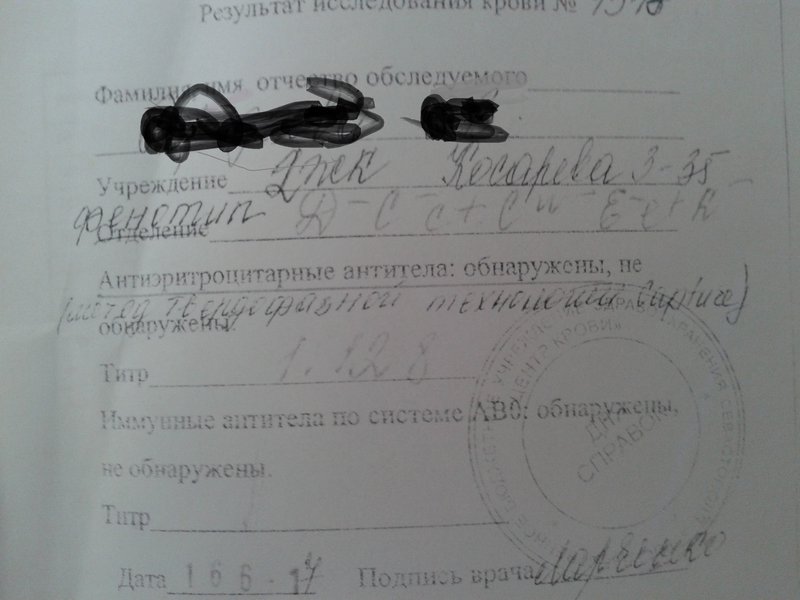 Результат исследования крови №
Фамилия имя отчество обследуемого
Учреждение Джк Косарева 3-35
фенотип D- C- c+ Cw- E- e+ K-
Отделение
Антиэритроцитарные антитела: обнаружены, не
(метод твердофазной технологии Capture)
обнаружены.
Титр 1:128
Иммунные антитела по системе АВ0: обнаружены,
не обнаружены.
Титр
Дата 16 6-17 Подпись врача
УЧРЕЖДЕНИЕ ЗДРАВООХРАНЕНИЯ СЕВАСТОПОЛЯ
ЦЕНТР КРОВИ»
ДЛЯ
СПРАВОК